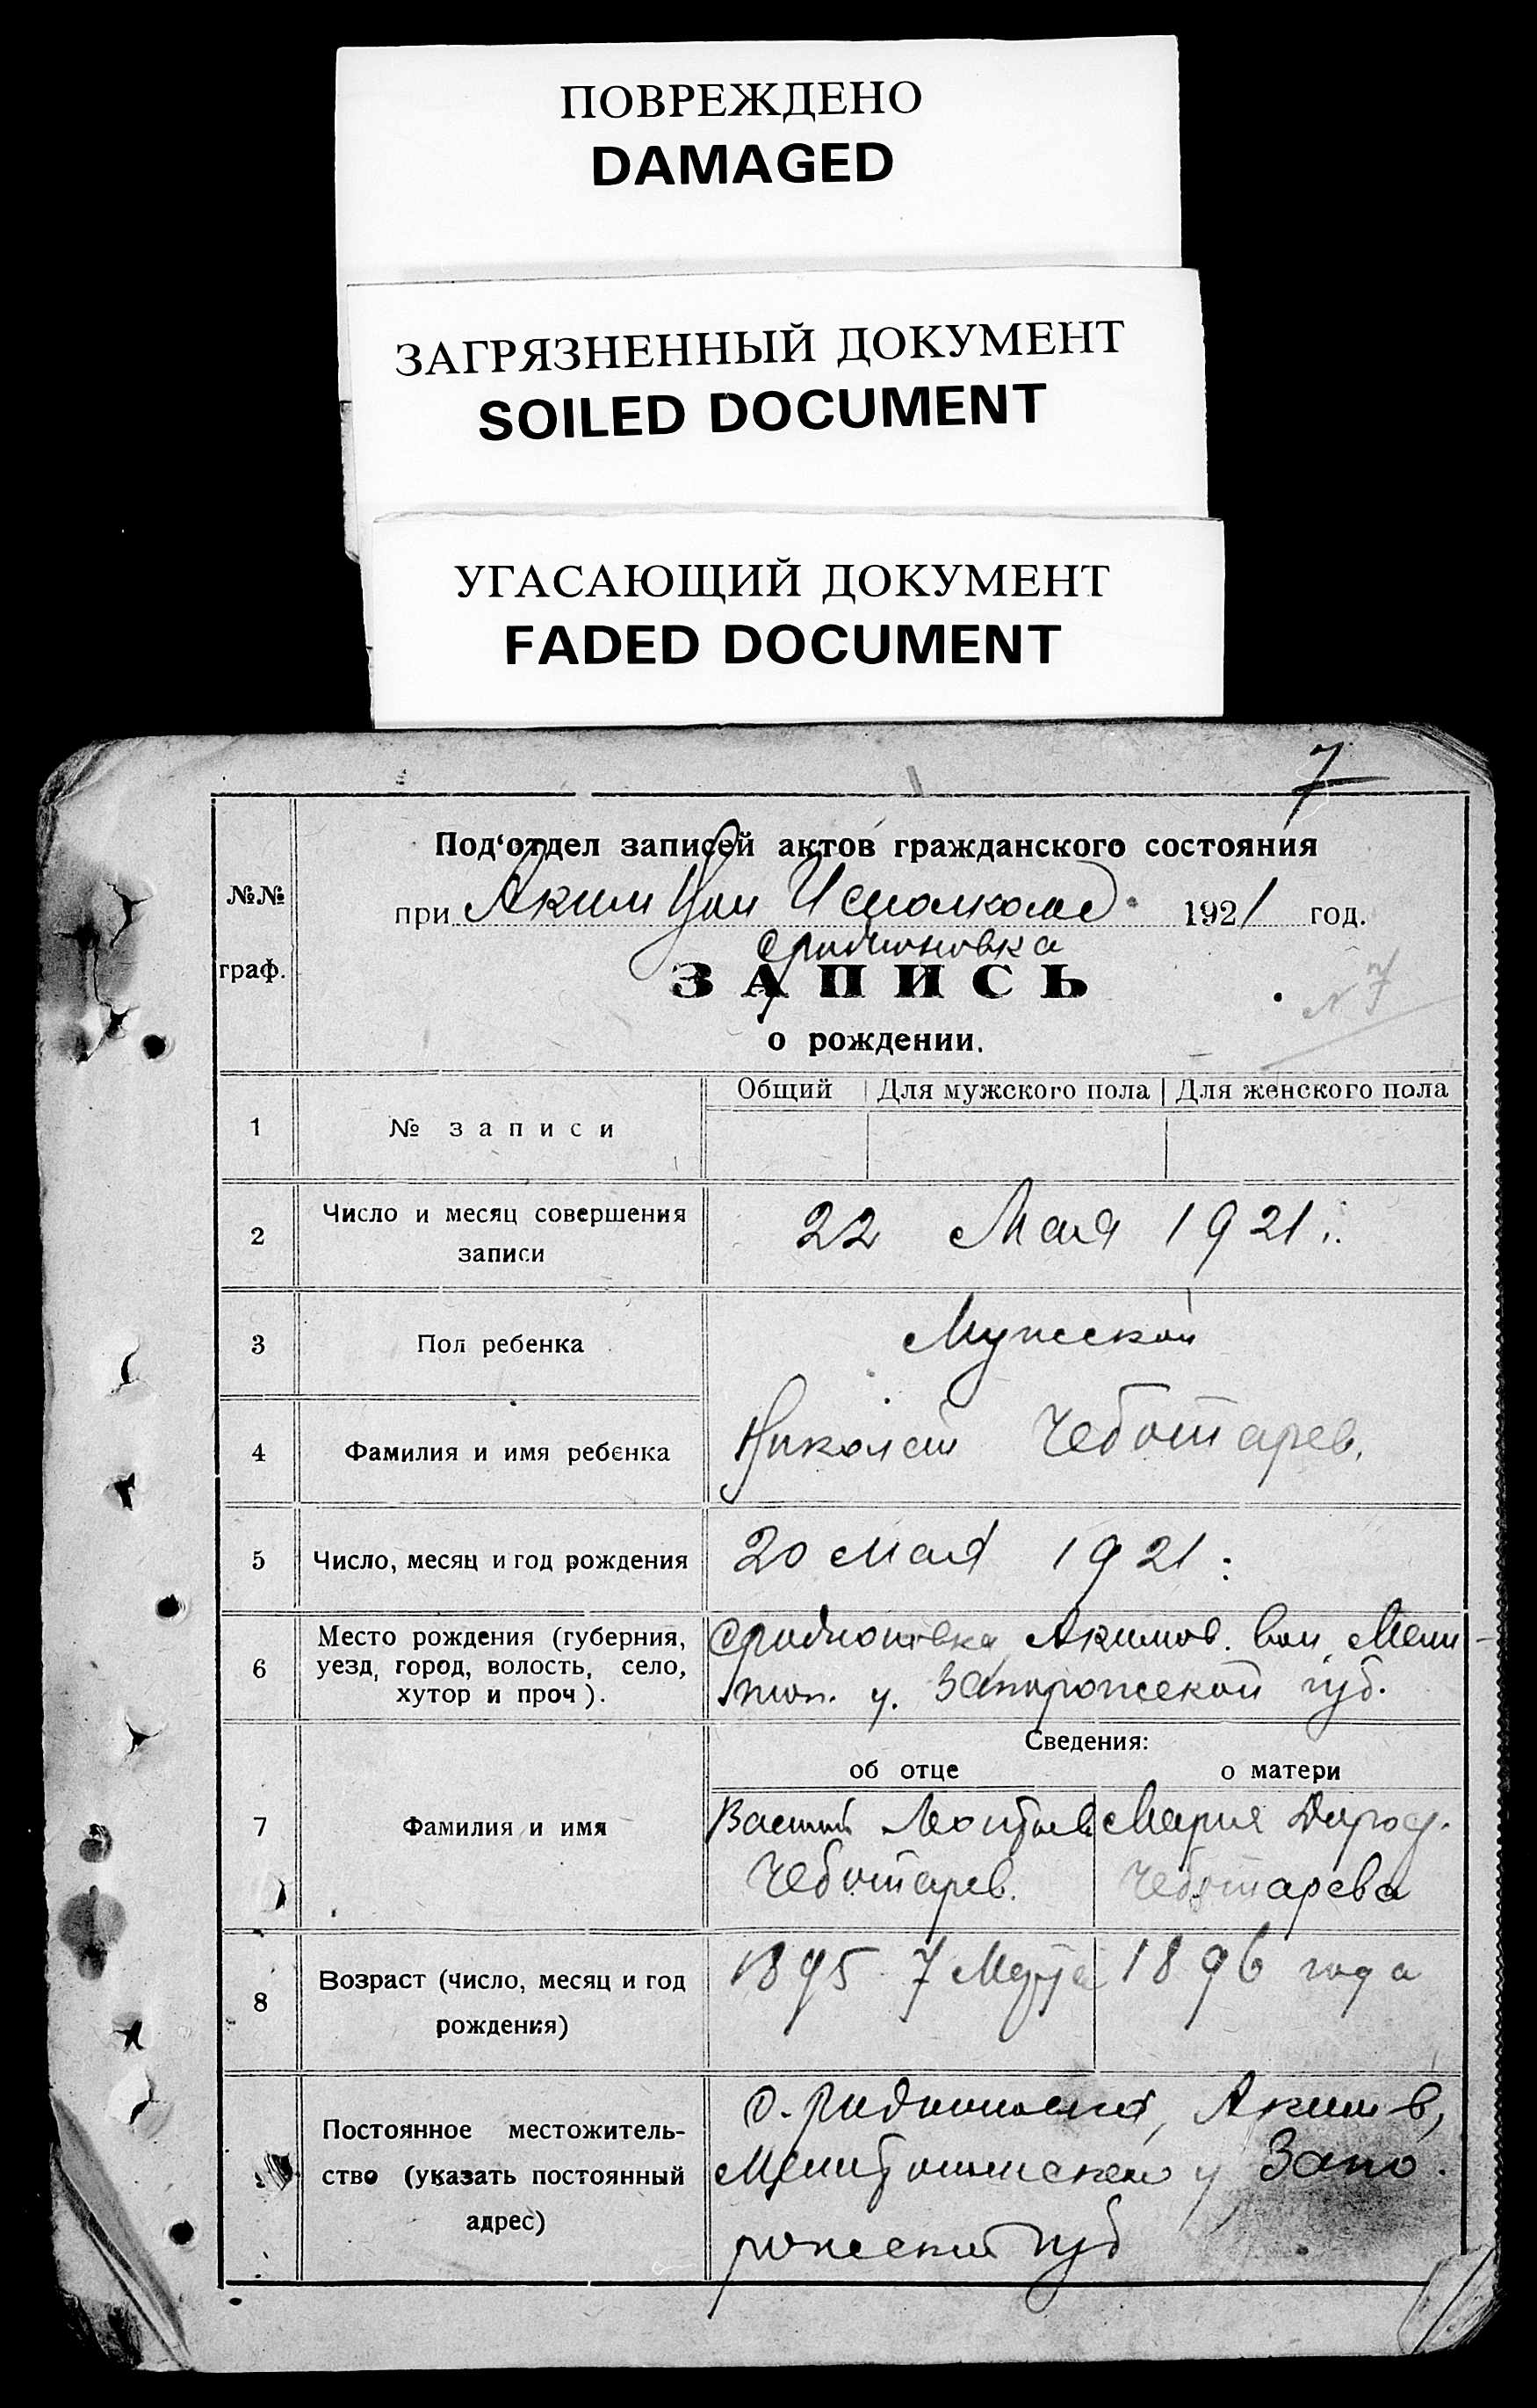 ПОВРЕЖДЕНО
DAMAGED
ЗАГРЯЗНЕННЫЙ ДОКУМЕНТ
SOILED DOCUMENT
УГАСАЮЩИЙ ДОКУМЕНТ
FADED DOCUMENT
7
Под‘отдел записей актов гражданского состояния
№№ граф.
при Аким 1921 год.
с Родионовка
ЗАПИСЬ
№ 7
о рождении.
Общий Для мужского пола Для женского пола
1 № записи
2 Число и месяц совершения записи
22 Мая 1921 г.
3 Пол ребенка
Мужской
4 Фамилия и имя ребенка
Николай Чеботарев.
5 Число, месяц и год рождения
20 мая 1921 г.
6 Место рождения (губерния,
уезд, город, волость, село,
хутор и проч).
с Родионовка, Акимов. вол. Мели-
топ. у. Запорожской губ.
Сведения:
об отце о матери
7 Фамилия и имя
Мария
Чеботарев. Чеботарева
8 Возраст (число, месяц и год
рождения)
1895 7 Марта 1896 года
Постоянное местожитель-
ство (указать постоянный
адрес)
с. Родионовка, Акимов,
Мелитопольского у. Запо-
рожской губ